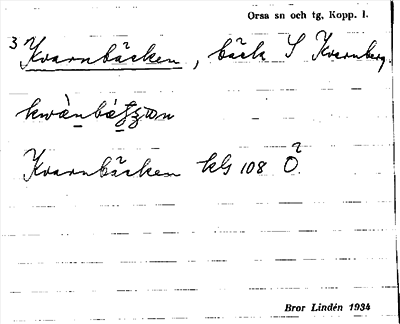 Orsa sn och tg. Kopp. l.
3 Kvarnbäcken, bäck S Kvarnberg.
Kvarnbäcken kls 108 Ö?
Bror Lindén 1934